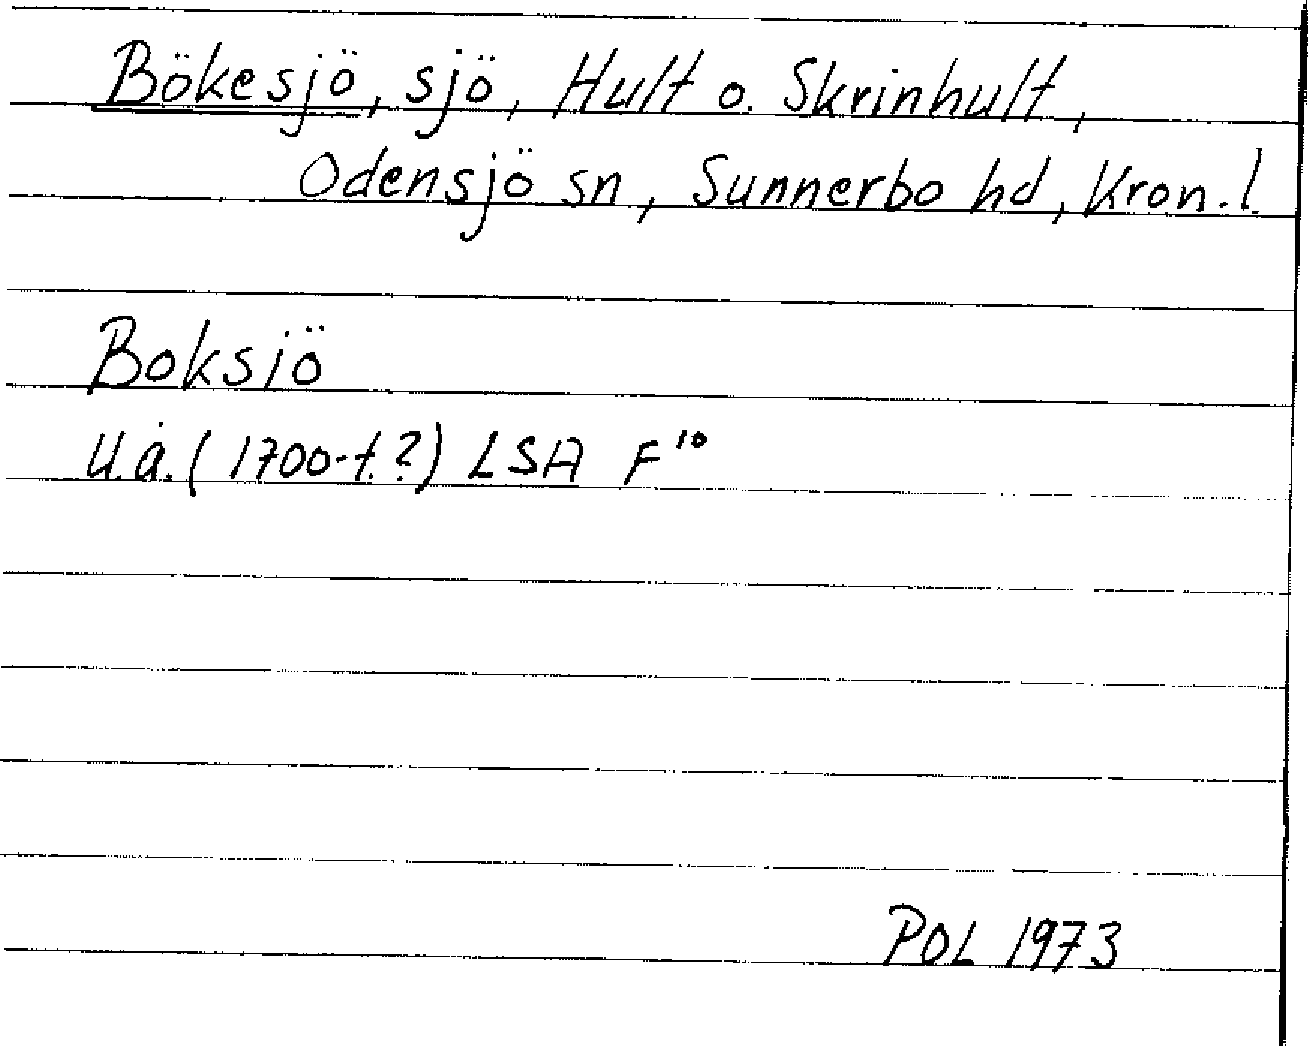 Bökesjö, sjö, Hult o. Skrinhult,
Odensjö sn, Sunnerbo hd, Kron. l.
Boksiö
U.å. (1700-t.?) LSA F¹⁰
POL 1973